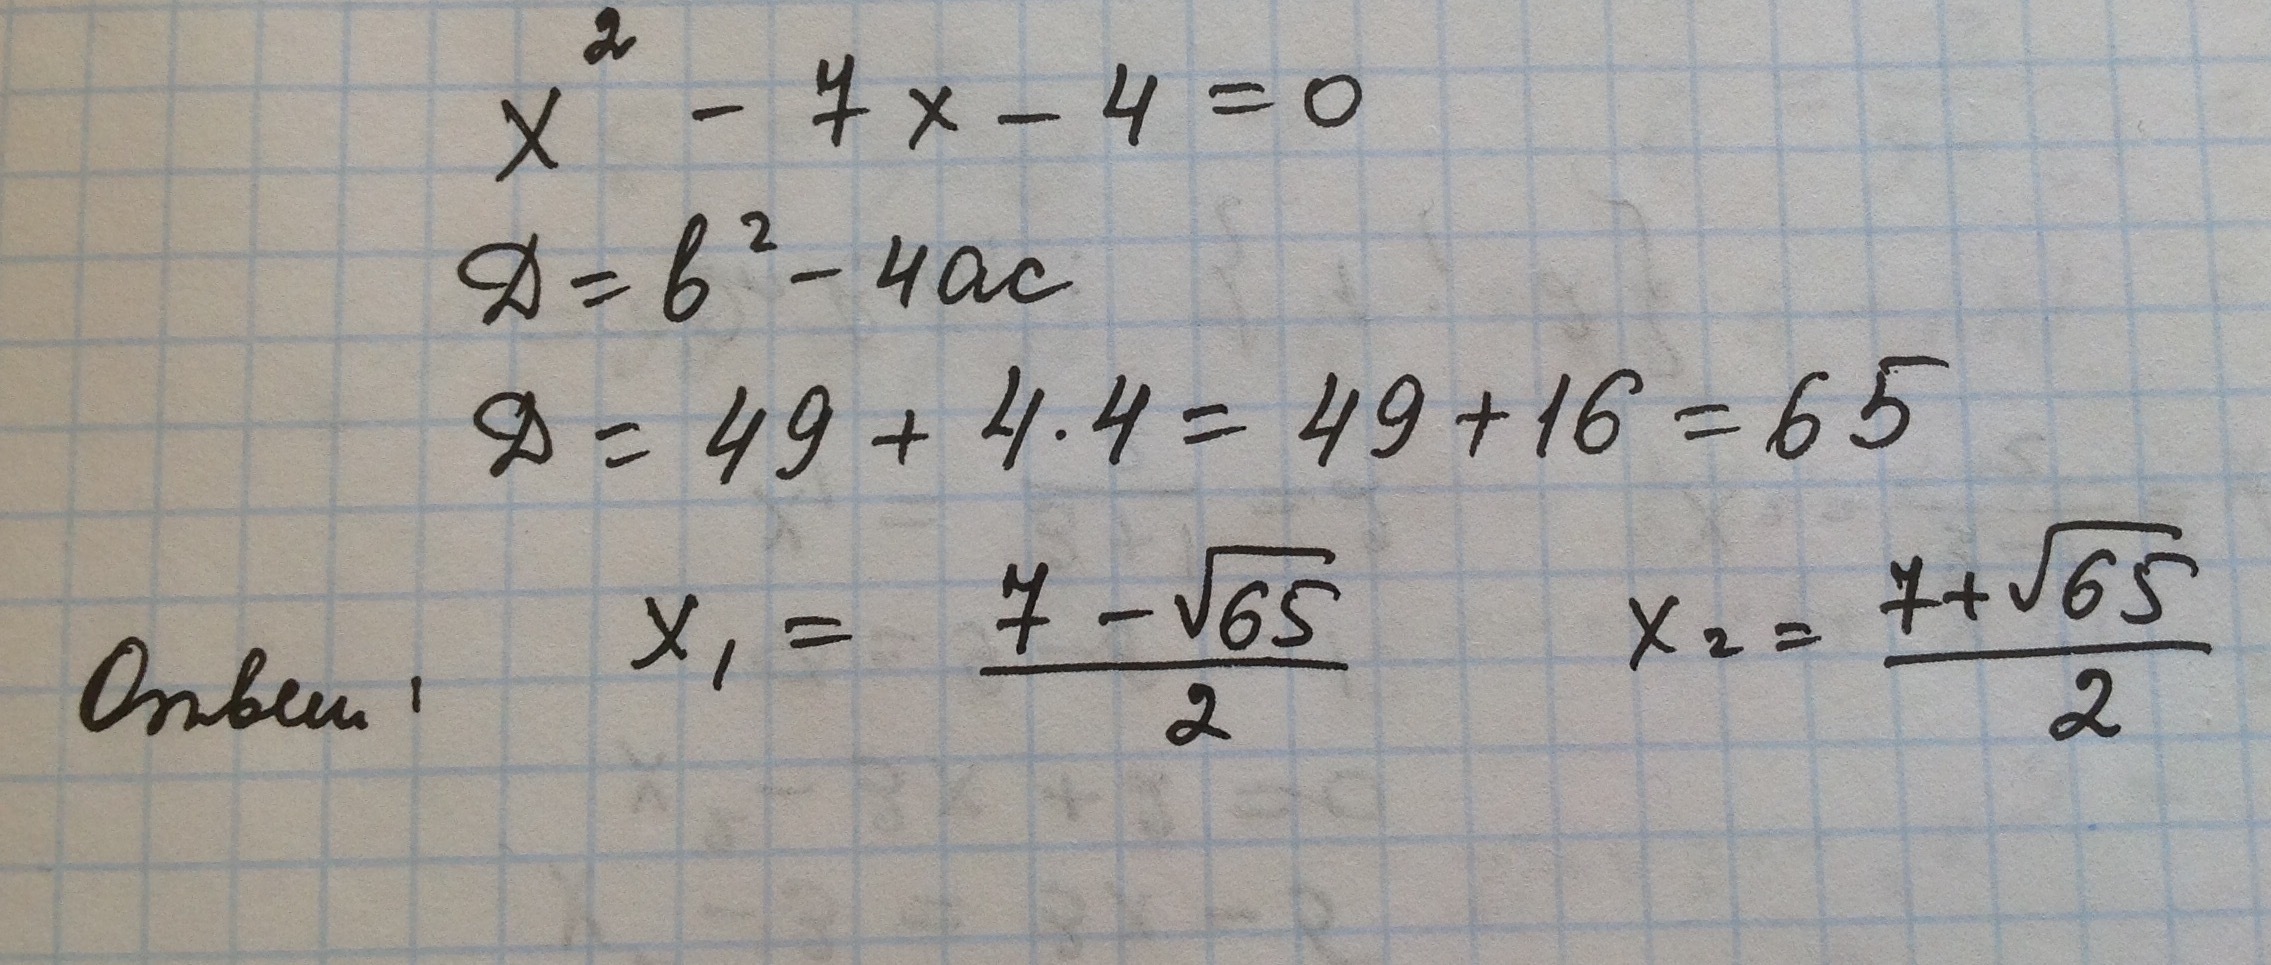 x² - 7x - 4 = 0
D = b² - 4ac
D = 49 + 4·4 = 49 + 16 = 65
Ответ: x₁ = (7 - √65)/2 x₂ = (7 + √65)/2